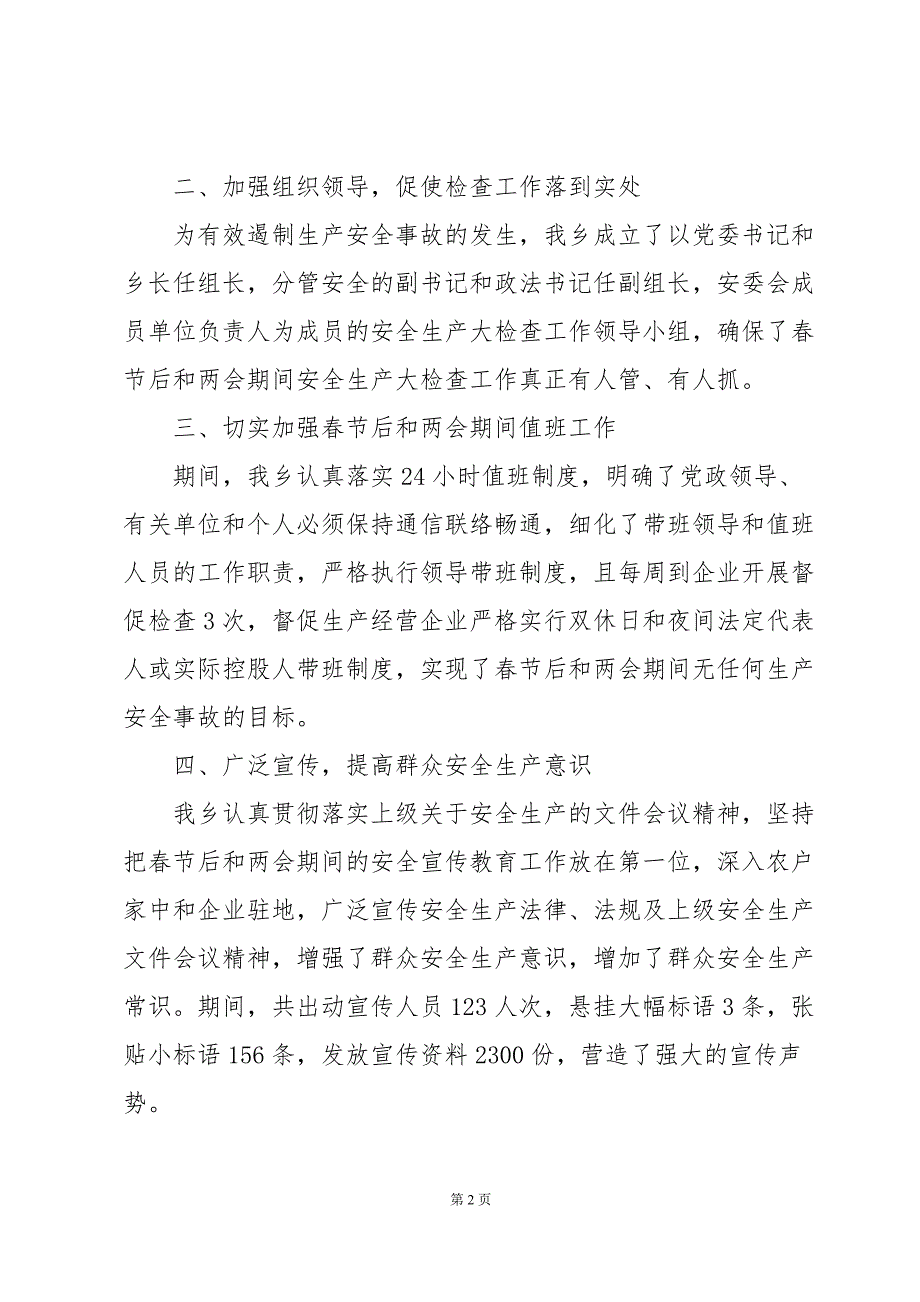 二、加强组织领导，促使检查工作落到实处
为有效遏制生产安全事故的发生，我乡成立了以党委书记和
乡长任组长，分管安全的副书记和政法书记任副组长，安委会成
员单位负责人为成员的安全生产大检查工作领导小组，确保了春
节后和两会期间安全生产大检查工作真正有人管、有人抓。
三、切实加强春节后和两会期间值班工作
期间，我乡认真落实 24 小时值班制度，明确了党政领导、
有关单位和个人必须保持通信联络畅通，细化了带班领导和值班
人员的工作职责，严格执行领导带班制度，且每周到企业开展督
促检查 3 次，督促生产经营企业严格实行双休日和夜间法定代表
人或实际控股人带班制度，实现了春节后和两会期间无任何生产
安全事故的目标。
四、广泛宣传，提高群众安全生产意识
我乡认真贯彻落实上级关于安全生产的文件会议精神，坚持
把春节后和两会期间的安全宣传教育工作放在第一位，深入农户
家中和企业驻地，广泛宣传安全生产法律、法规及上级安全生产
文件会议精神，增强了群众安全生产意识，增加了群众安全生产
常识。期间，共出动宣传人员 123 人次，悬挂大幅标语 3 条，张
贴小标语 156 条，发放宣传资料 2300 份，营造了强大的宣传声
势。
第 2 页